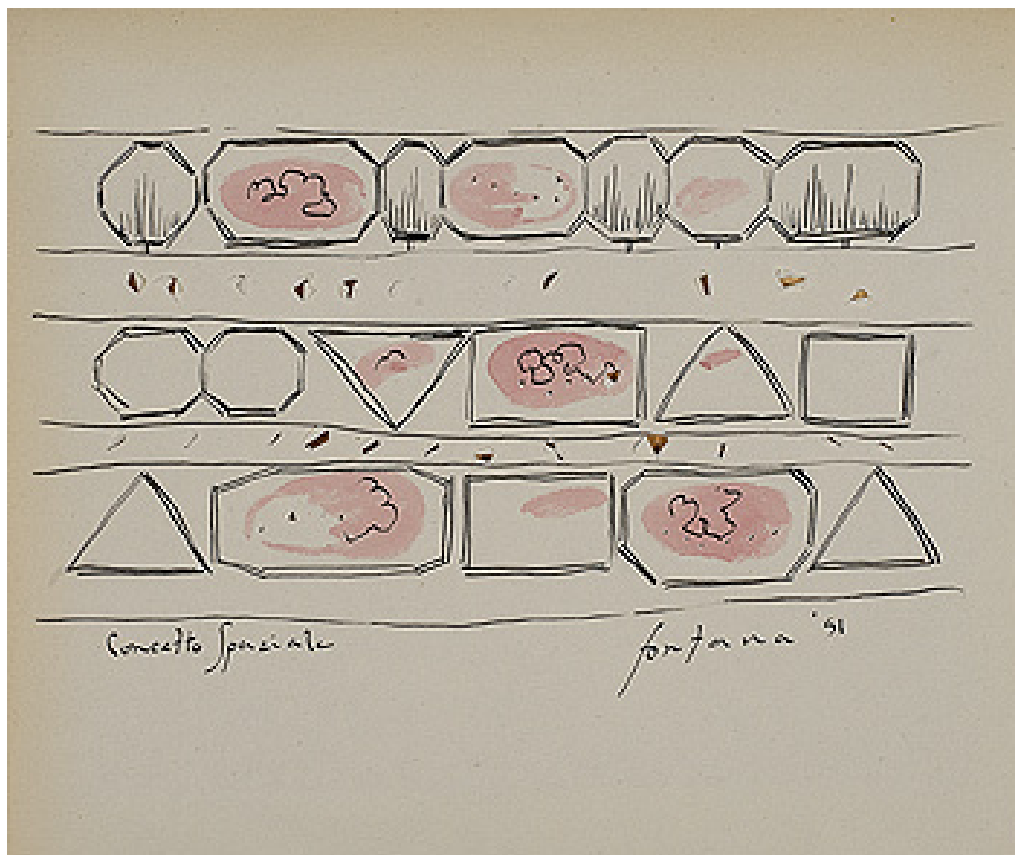 Concetto Spaziale
fontana '51